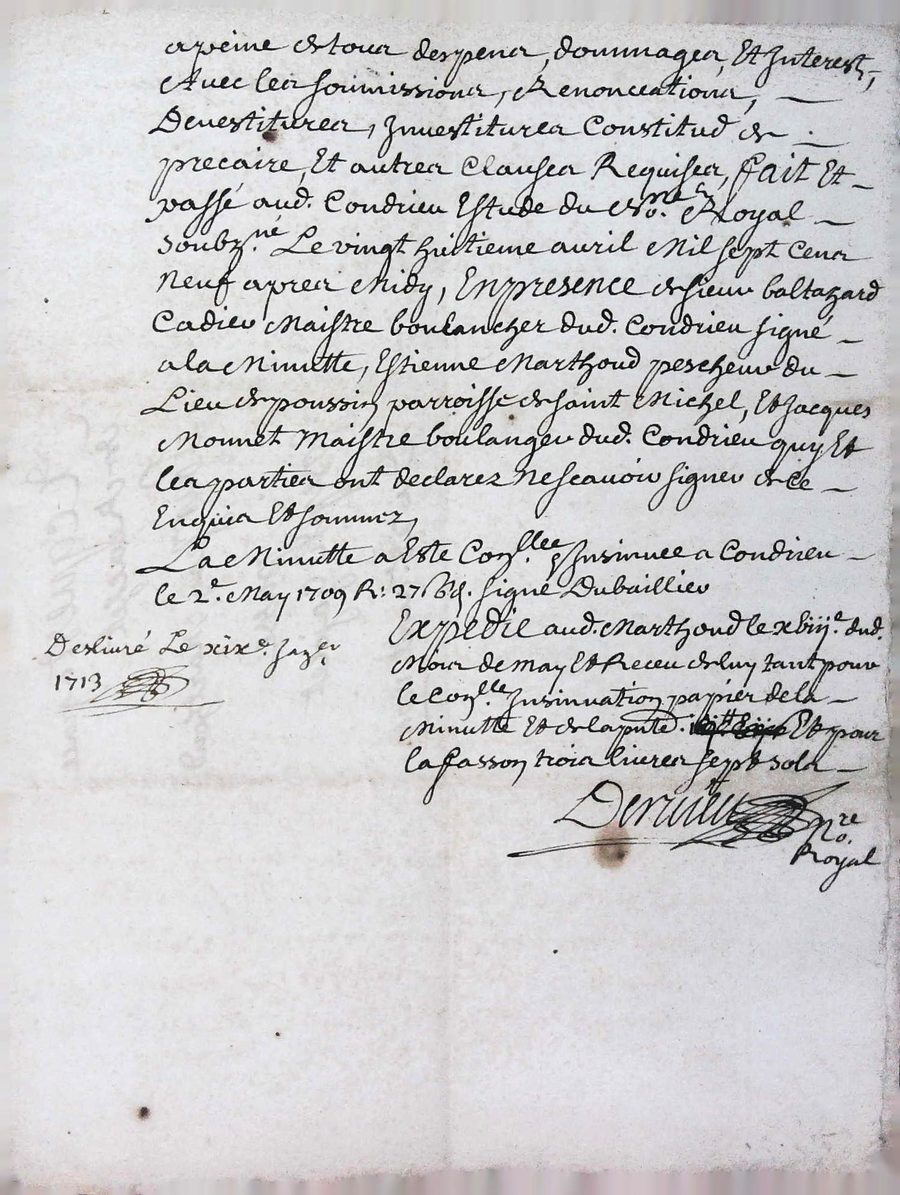 apeine de tous despens, dommages, Et Interest,
Avec les soumissions, Renonceations,
Devestitures, Investitures Constitud de
precaire, Et autres Clauses Requises, fait Et
passé aud. Condrieu Estude du No.re Royal
soubz.né Le vingt huitieme avril Mil sept Cens
Neuf apres Midy, En presence de sieur baltazard
Cadieu Maistre boulancher dud. Condrieu signé
a la Minutte, Estienne Marthoud pescheur du
Lieu de poussin parroisse de saint Michel, Et Jacques
Monnet Maistre boulanger dud. Condrieu quy Et
les parties ont declarez Ne scavoir signer de ce
Enquis Et sommez,
La Minutte a Este Con.llee Insinuee a Condrieu
le 2.e May 1709 R: 27 signé Dubaillier
Expedié aud. Marthoud le xbiij.e dud.
Mois de may Et Receu de luy tant pour
le Con.lle Insinuation papier de la
Minutte Et de la pnte. Et pour
la fasson trois livres sept sols
Deslivré Le xix.e
1713
No.re
Royal